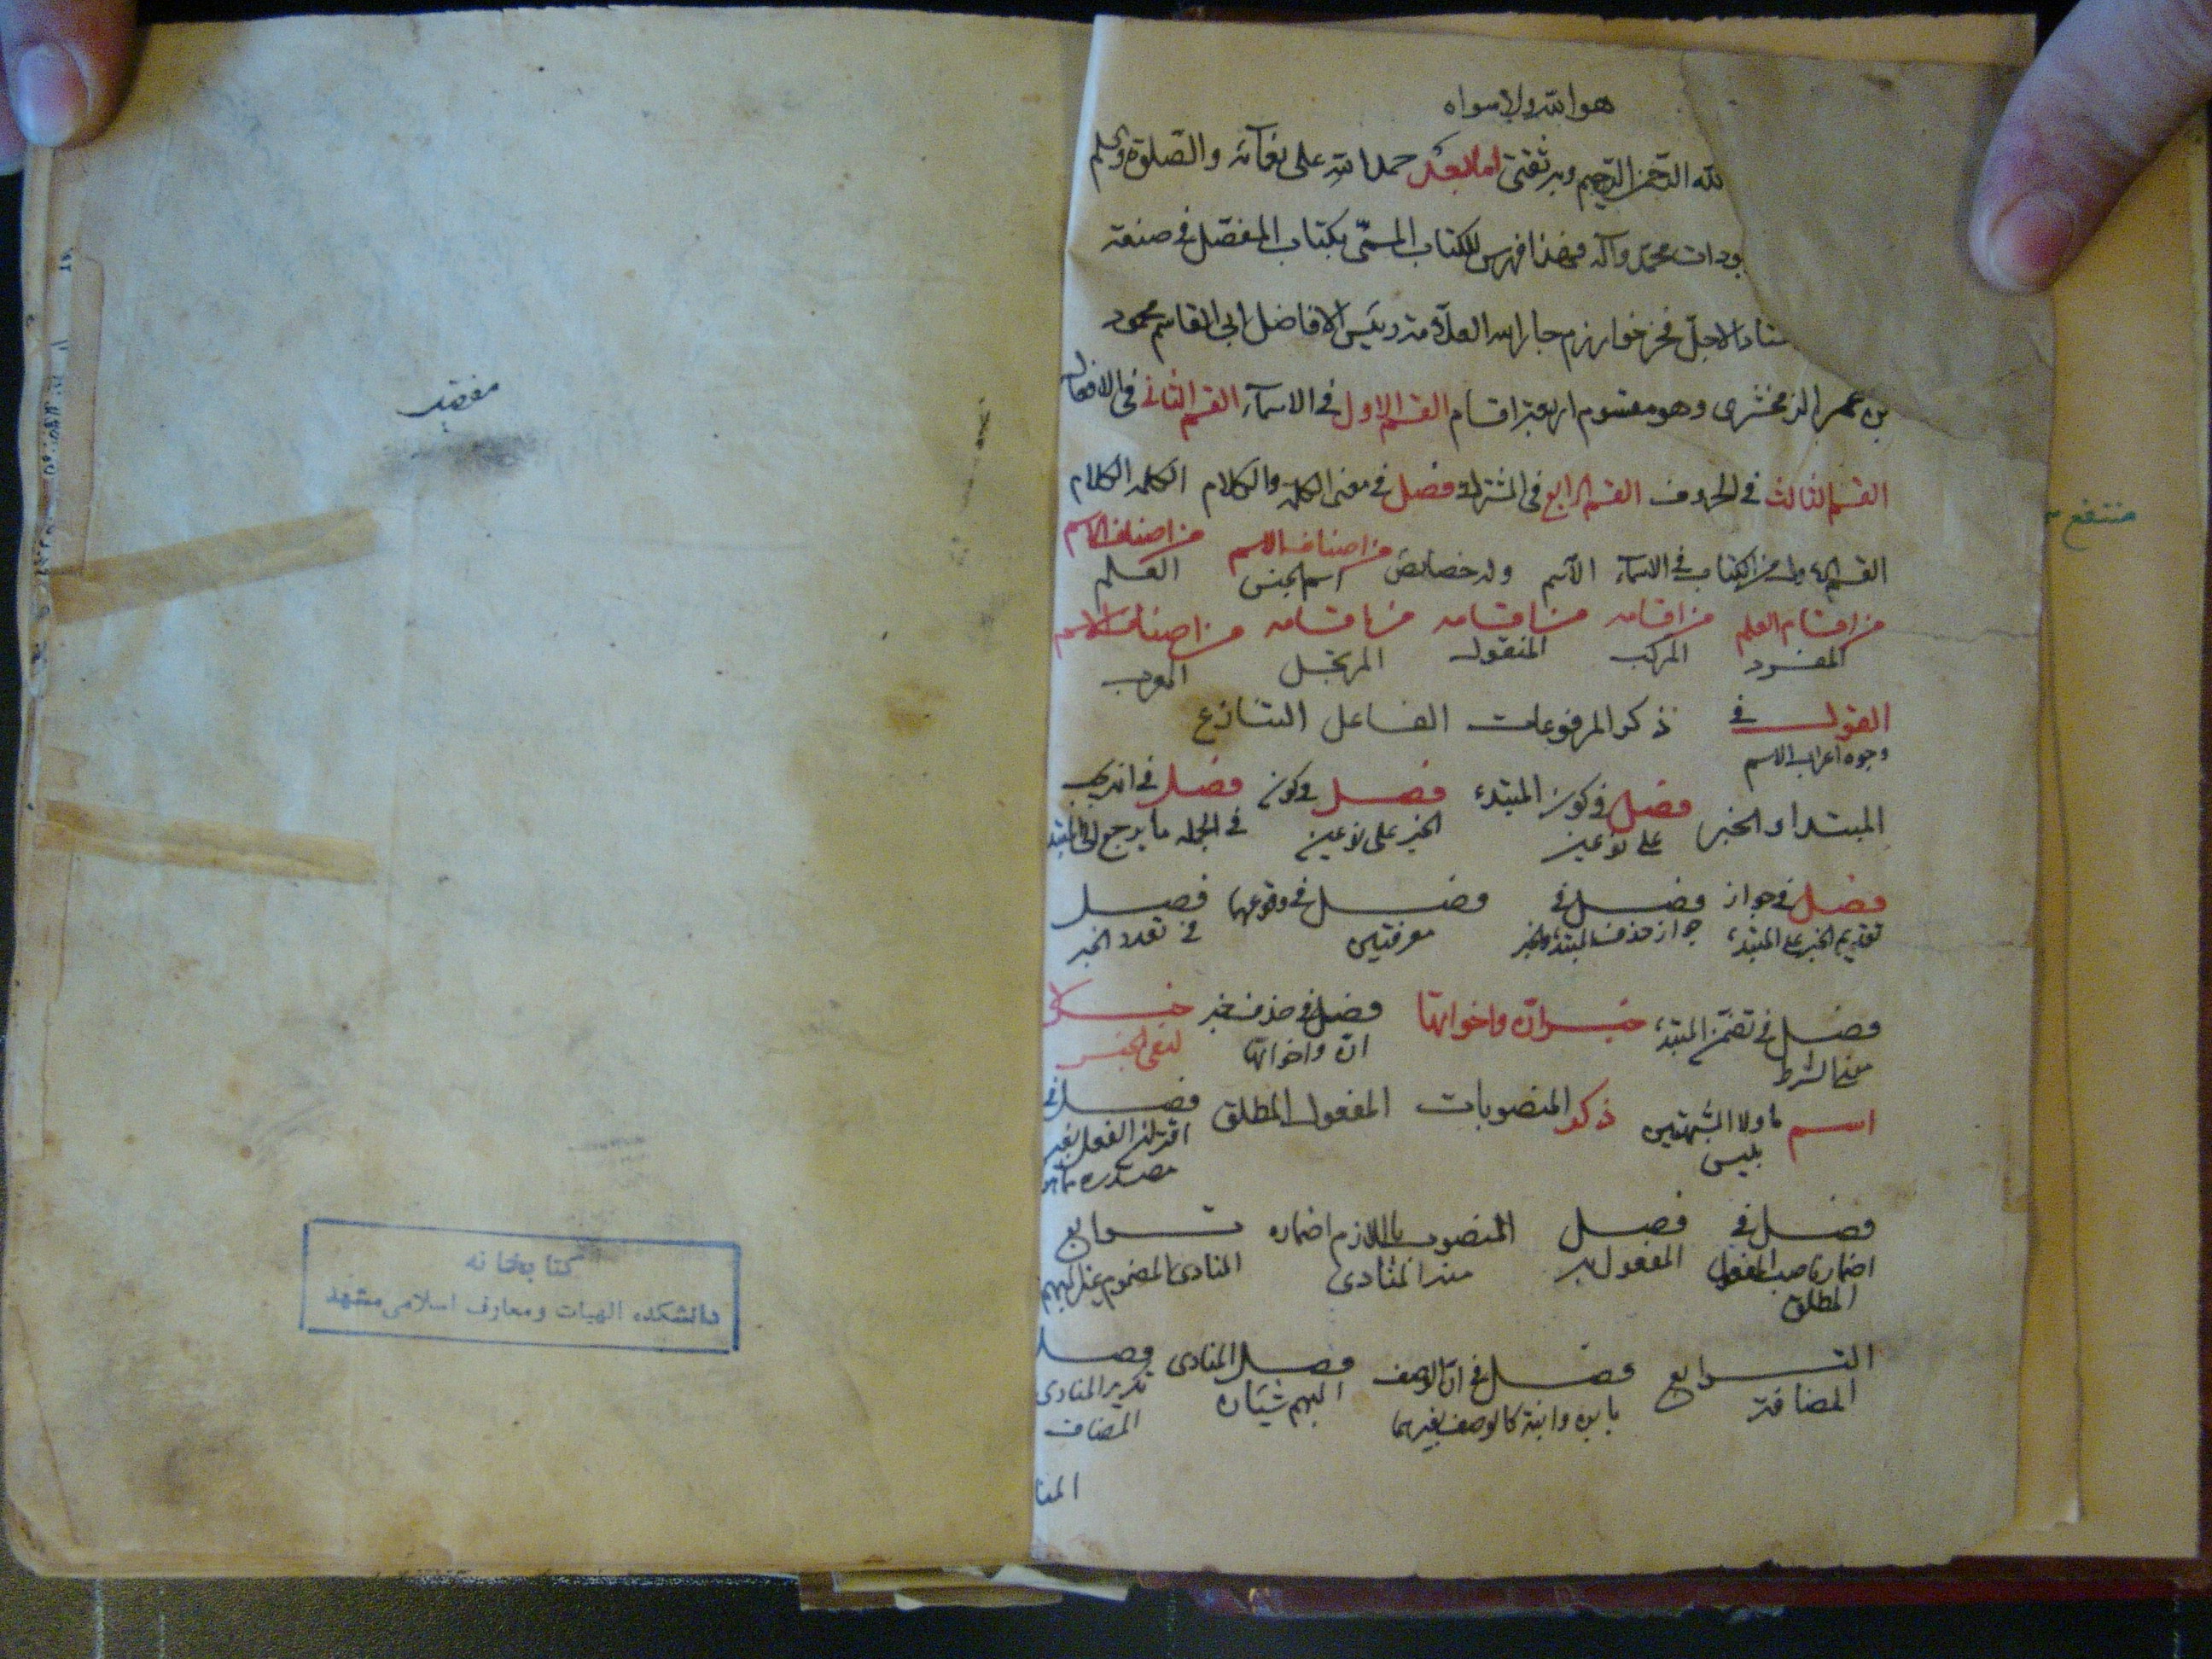 هو الله ولا سواه
لله الرحمن الرحيم وبه ثقتى اما بعد حمدا لله على نعمآئه والصلوة
محمد وآله فهذا فهرس للكتاب المسمّى بكتاب المفصّل فى صنعة
الاجلّ فخر خوارزم جار الله العلّامة رئيس الافاضل ابى القاسم محمود
بن عمر الزمخشرى وهو مقسوم اربعة اقسام القسم الاول فى الاسمآء القسم الثانى فى الافعال
القسم الثالث فى الحروف القسم الرابع فى المشترك فصل فى معنى الكلمة والكلام الكلمه الكلام
القسم الاول من الكتاب فى الاسمآء الاسم وله خصايص من اصناف الاسم اسم الجنس من اصناف الاسم العلم
من اقسام العلم المفرد من اقسامه المركب من اقسامه المنقول من اقسامه المرتجل من اصناف الاسم المعرب
القول فى وجوه اعراب الاسم ذكر المرفوعات الفاعل التنازع
المبتدا والخبر فصل فى كون المبتدء على نوعين فصل وكون الخبر على نوعين فصل فى انه يجب فى الجمله ما يرجع الى المبتد
فصل فى جواز تقديم الخبر على المبتدء فصل فى جواز حذف المبتدء والخبر فصل فى وقوعهما معرفتين فصل فى تعدد الخبر
فصل فى تضمّن المبتدء معنى الشرط خبر انّ واخواتها فصل فى حذف خبر انّ واخواتها خبر لا لنفى الجنس
اسم ما ولا المشبّهتين بليس ذكر المنصوبات المفعول المطلق فصل فى اقتران الفعل بغير مصدره
فصل فى اضمار ناصب المفعول المطلق فصل المفعول به المنصوب باللازم اضماره منه المنادى توابع المنادى المضموم غير المبهم
التوابع المضافة فصل فى انّ الوصف بابن وابنة كالوصف بغيرهما فصل المنادى المبهم شيئان فصل تكرير المنادى المضاف
المنا
كتابخانه
دانشكده الهيات ومعارف اسلامى مشهد